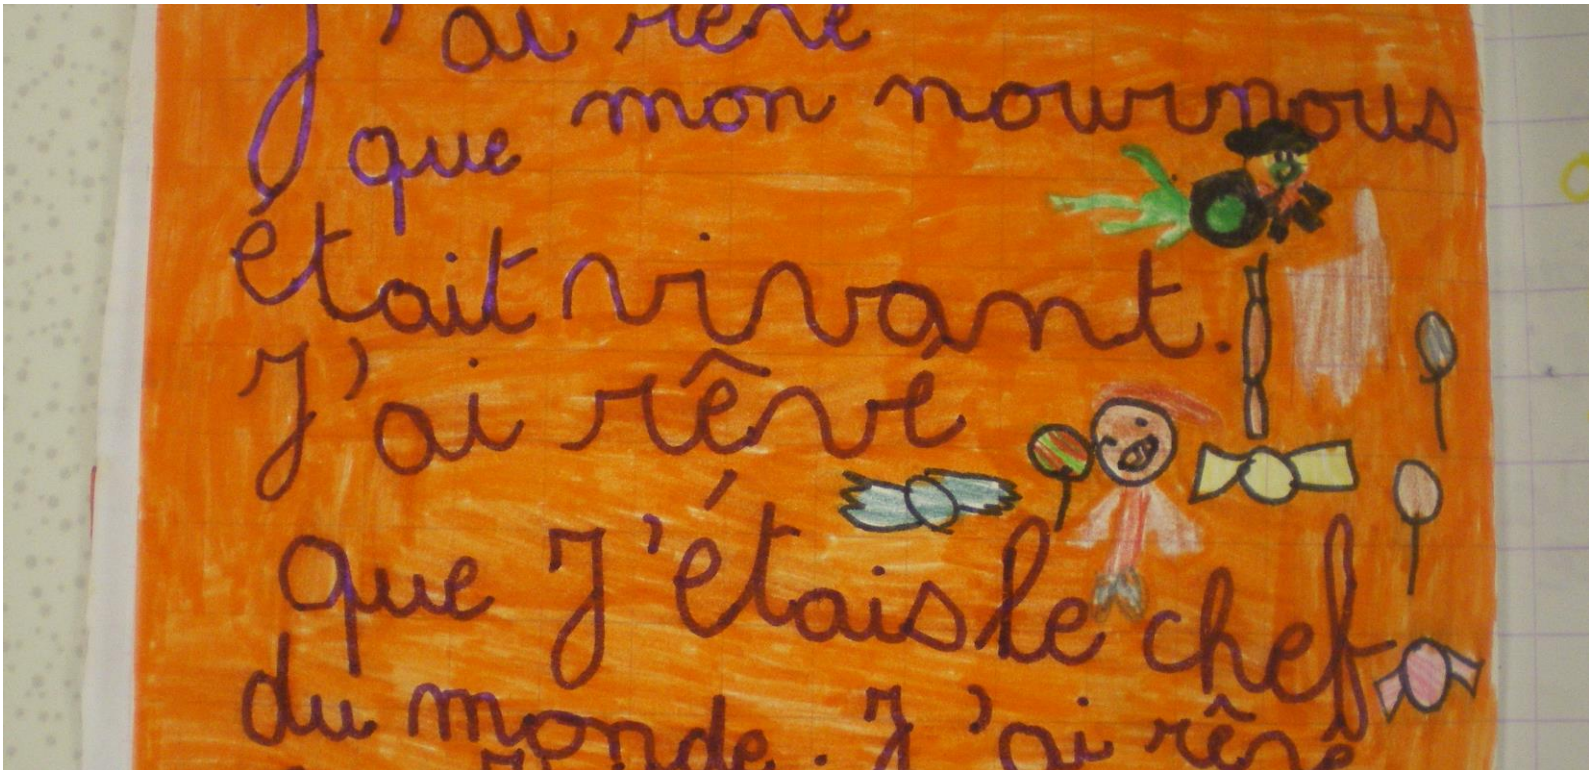 J'ai rêvé
que mon nournous
était vivant.
J'ai rêvé
que J'étais le chef
du monde. J'ai rêvé